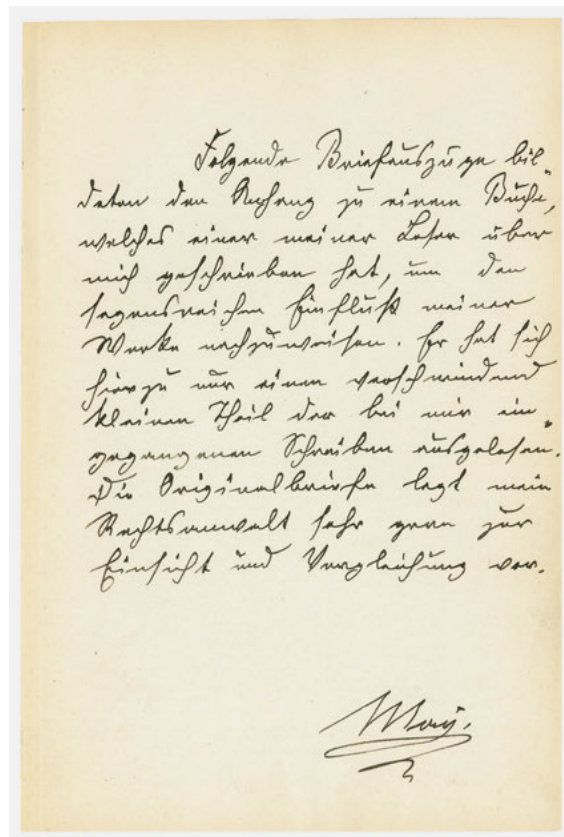 Folgende Briefauszüge bil-
deten den Anhang zu einem Buche,
welches einer meiner Leser über
mich geschrieben hat, um den
segensreichen Einfluß meiner
Werke nachzuweisen. Er hat sich
hierzu nur einen verschwindend
kleinen Theil der bei mir ein-
gegangenen Schreiben ausgelesen.
Die Originalbriefe legt mein
Rechtsanwalt sehr gern zur
Einsicht und Vergleichung vor.
May.